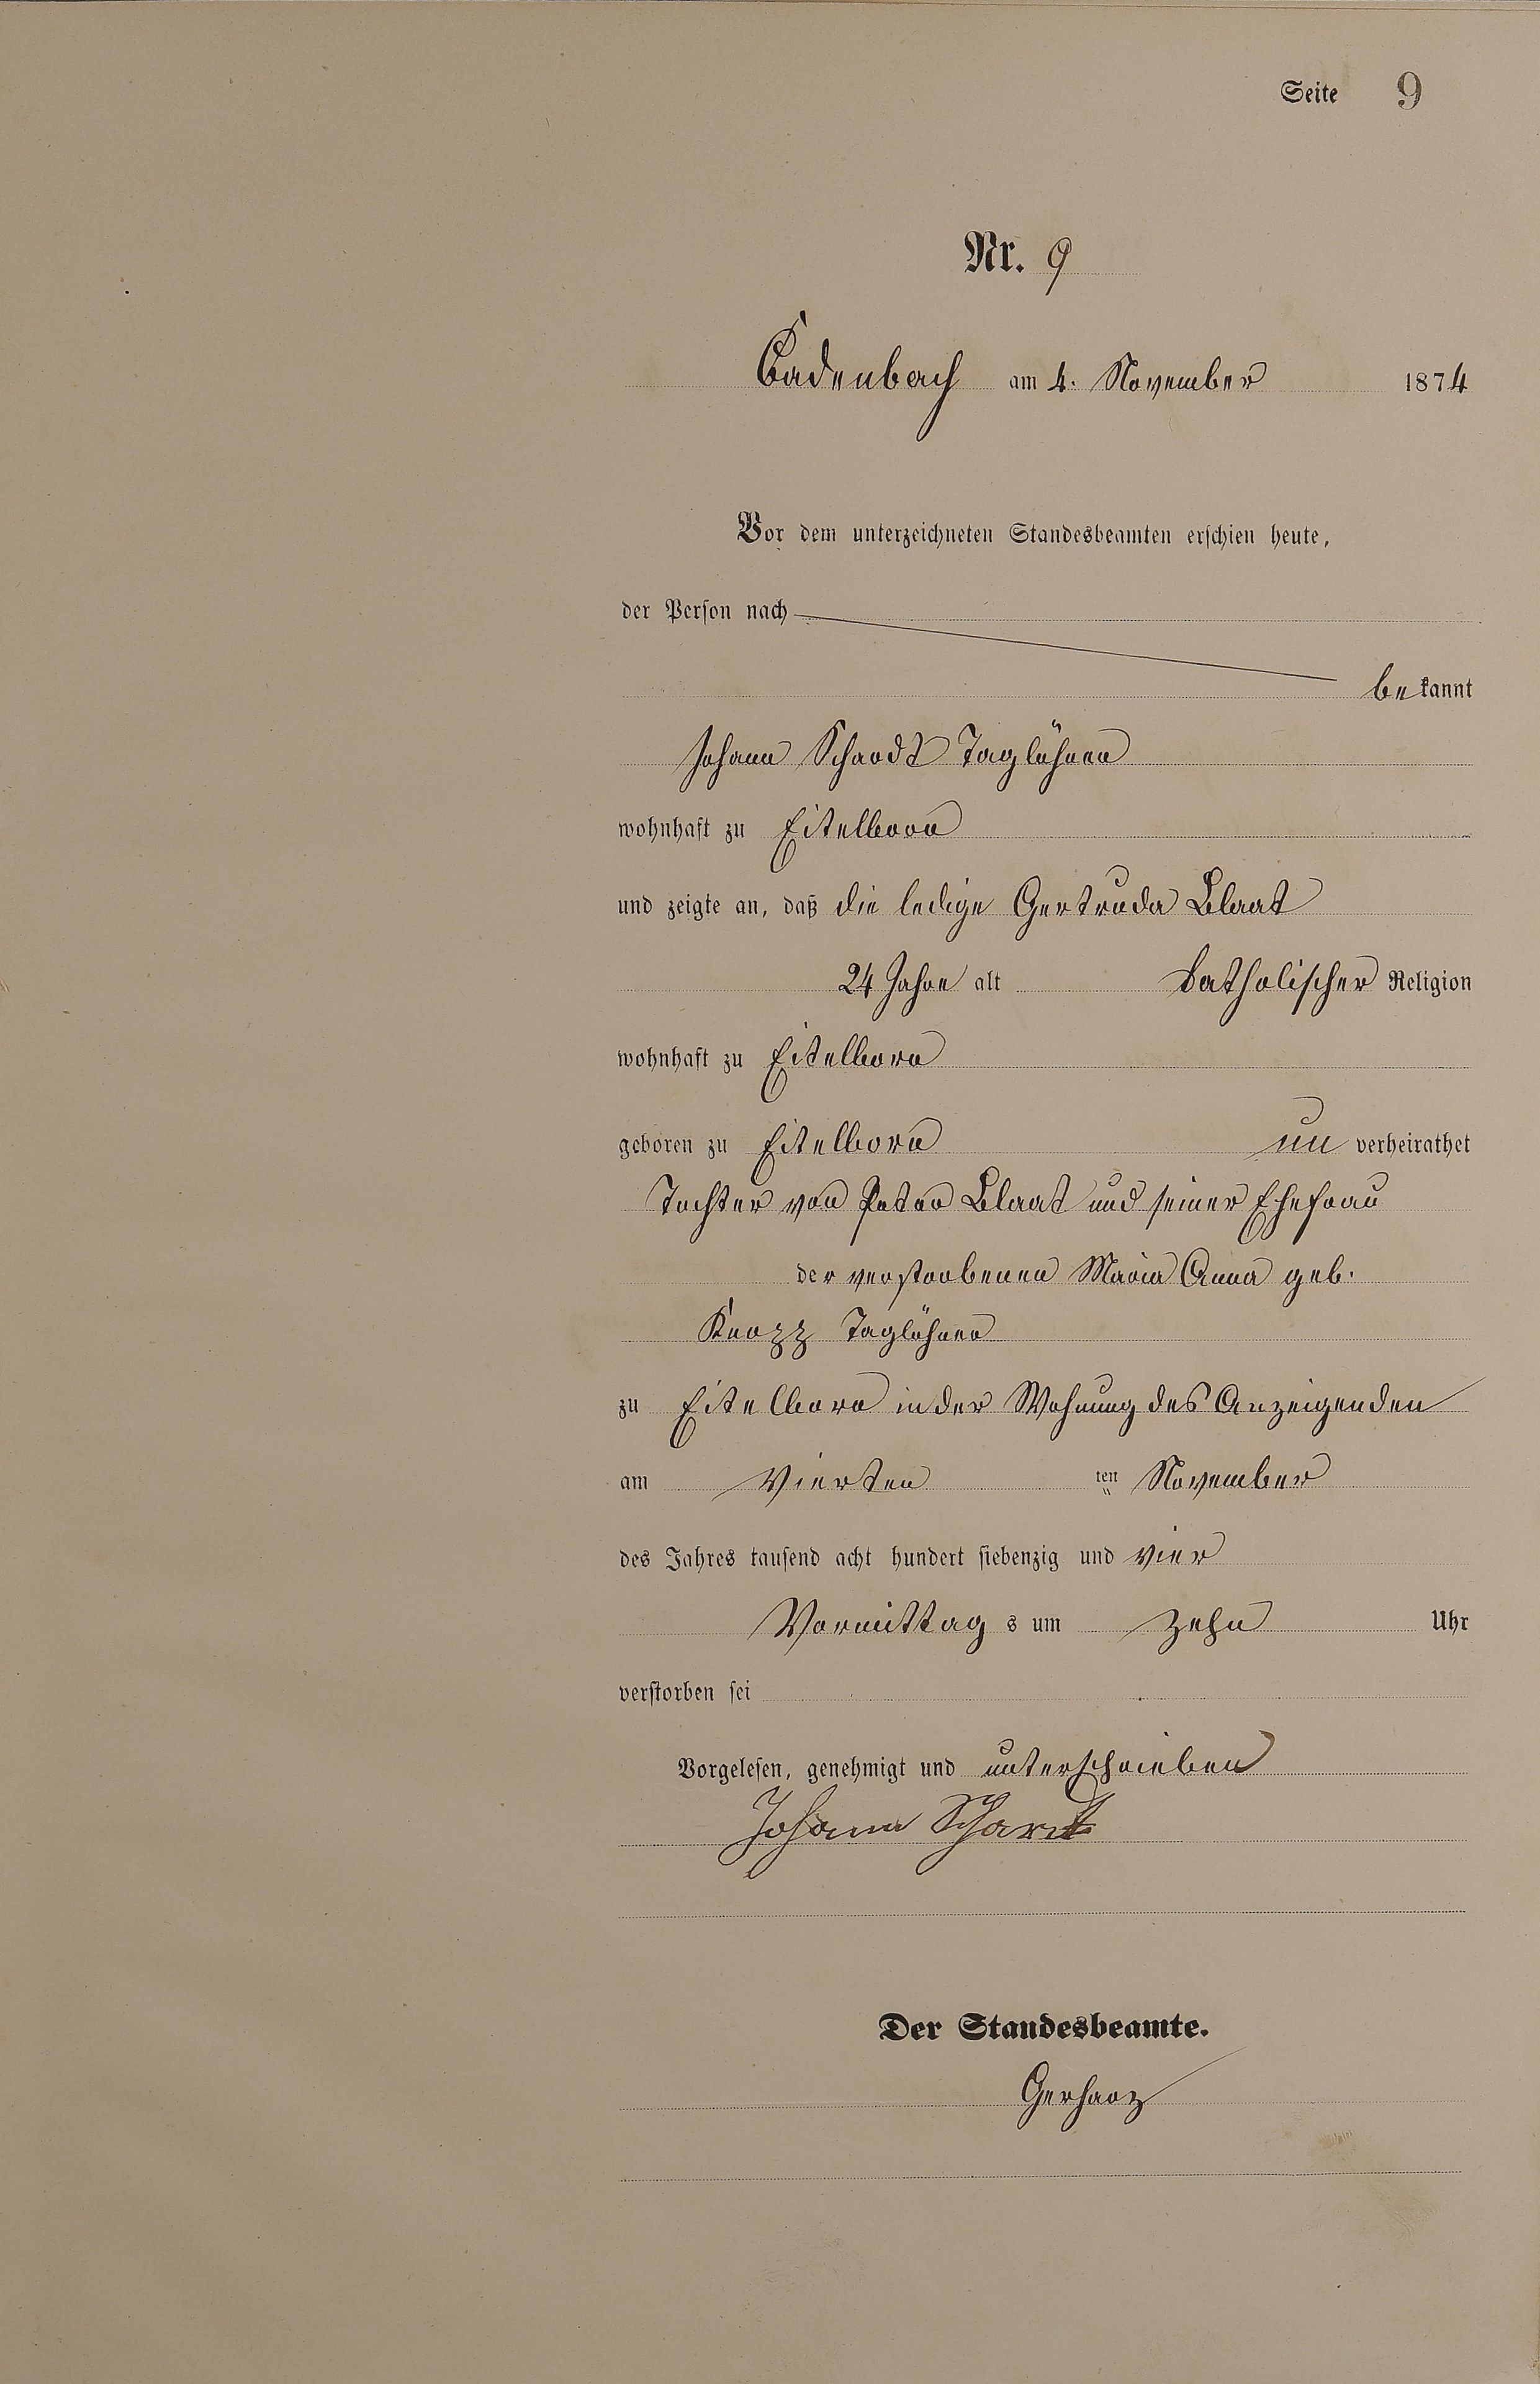 Seite 9
Nr. 9
Cadenbach am 4. November 1874
Vor dem unterzeichneten Standesbeamten erschien heute,
der Person nach
bekannt
Johann Schardt Taglöhner
wohnhaft zu Eitelborn
und zeigte an, daß die ledige Gertruda Blaat
24 Jahre alt katholischer Religion
wohnhaft zu Eitelborn
geboren zu Eitelborn un verheirathet
Tochter von Peter Blaat und seiner Ehefrau
der verstorbenen Maria Anna geb.
Taglöhner
zu Eitelborn in der Wohnung des Anzeigenden
am Vierten ten November
des Jahres tausend acht hundert siebenzig und vier
Vormittag s um zehn Uhr
verstorben sei
Vorgelesen, genehmigt und unterschrieben
Johann Schardt
Der Standesbeamte.
Gerharz